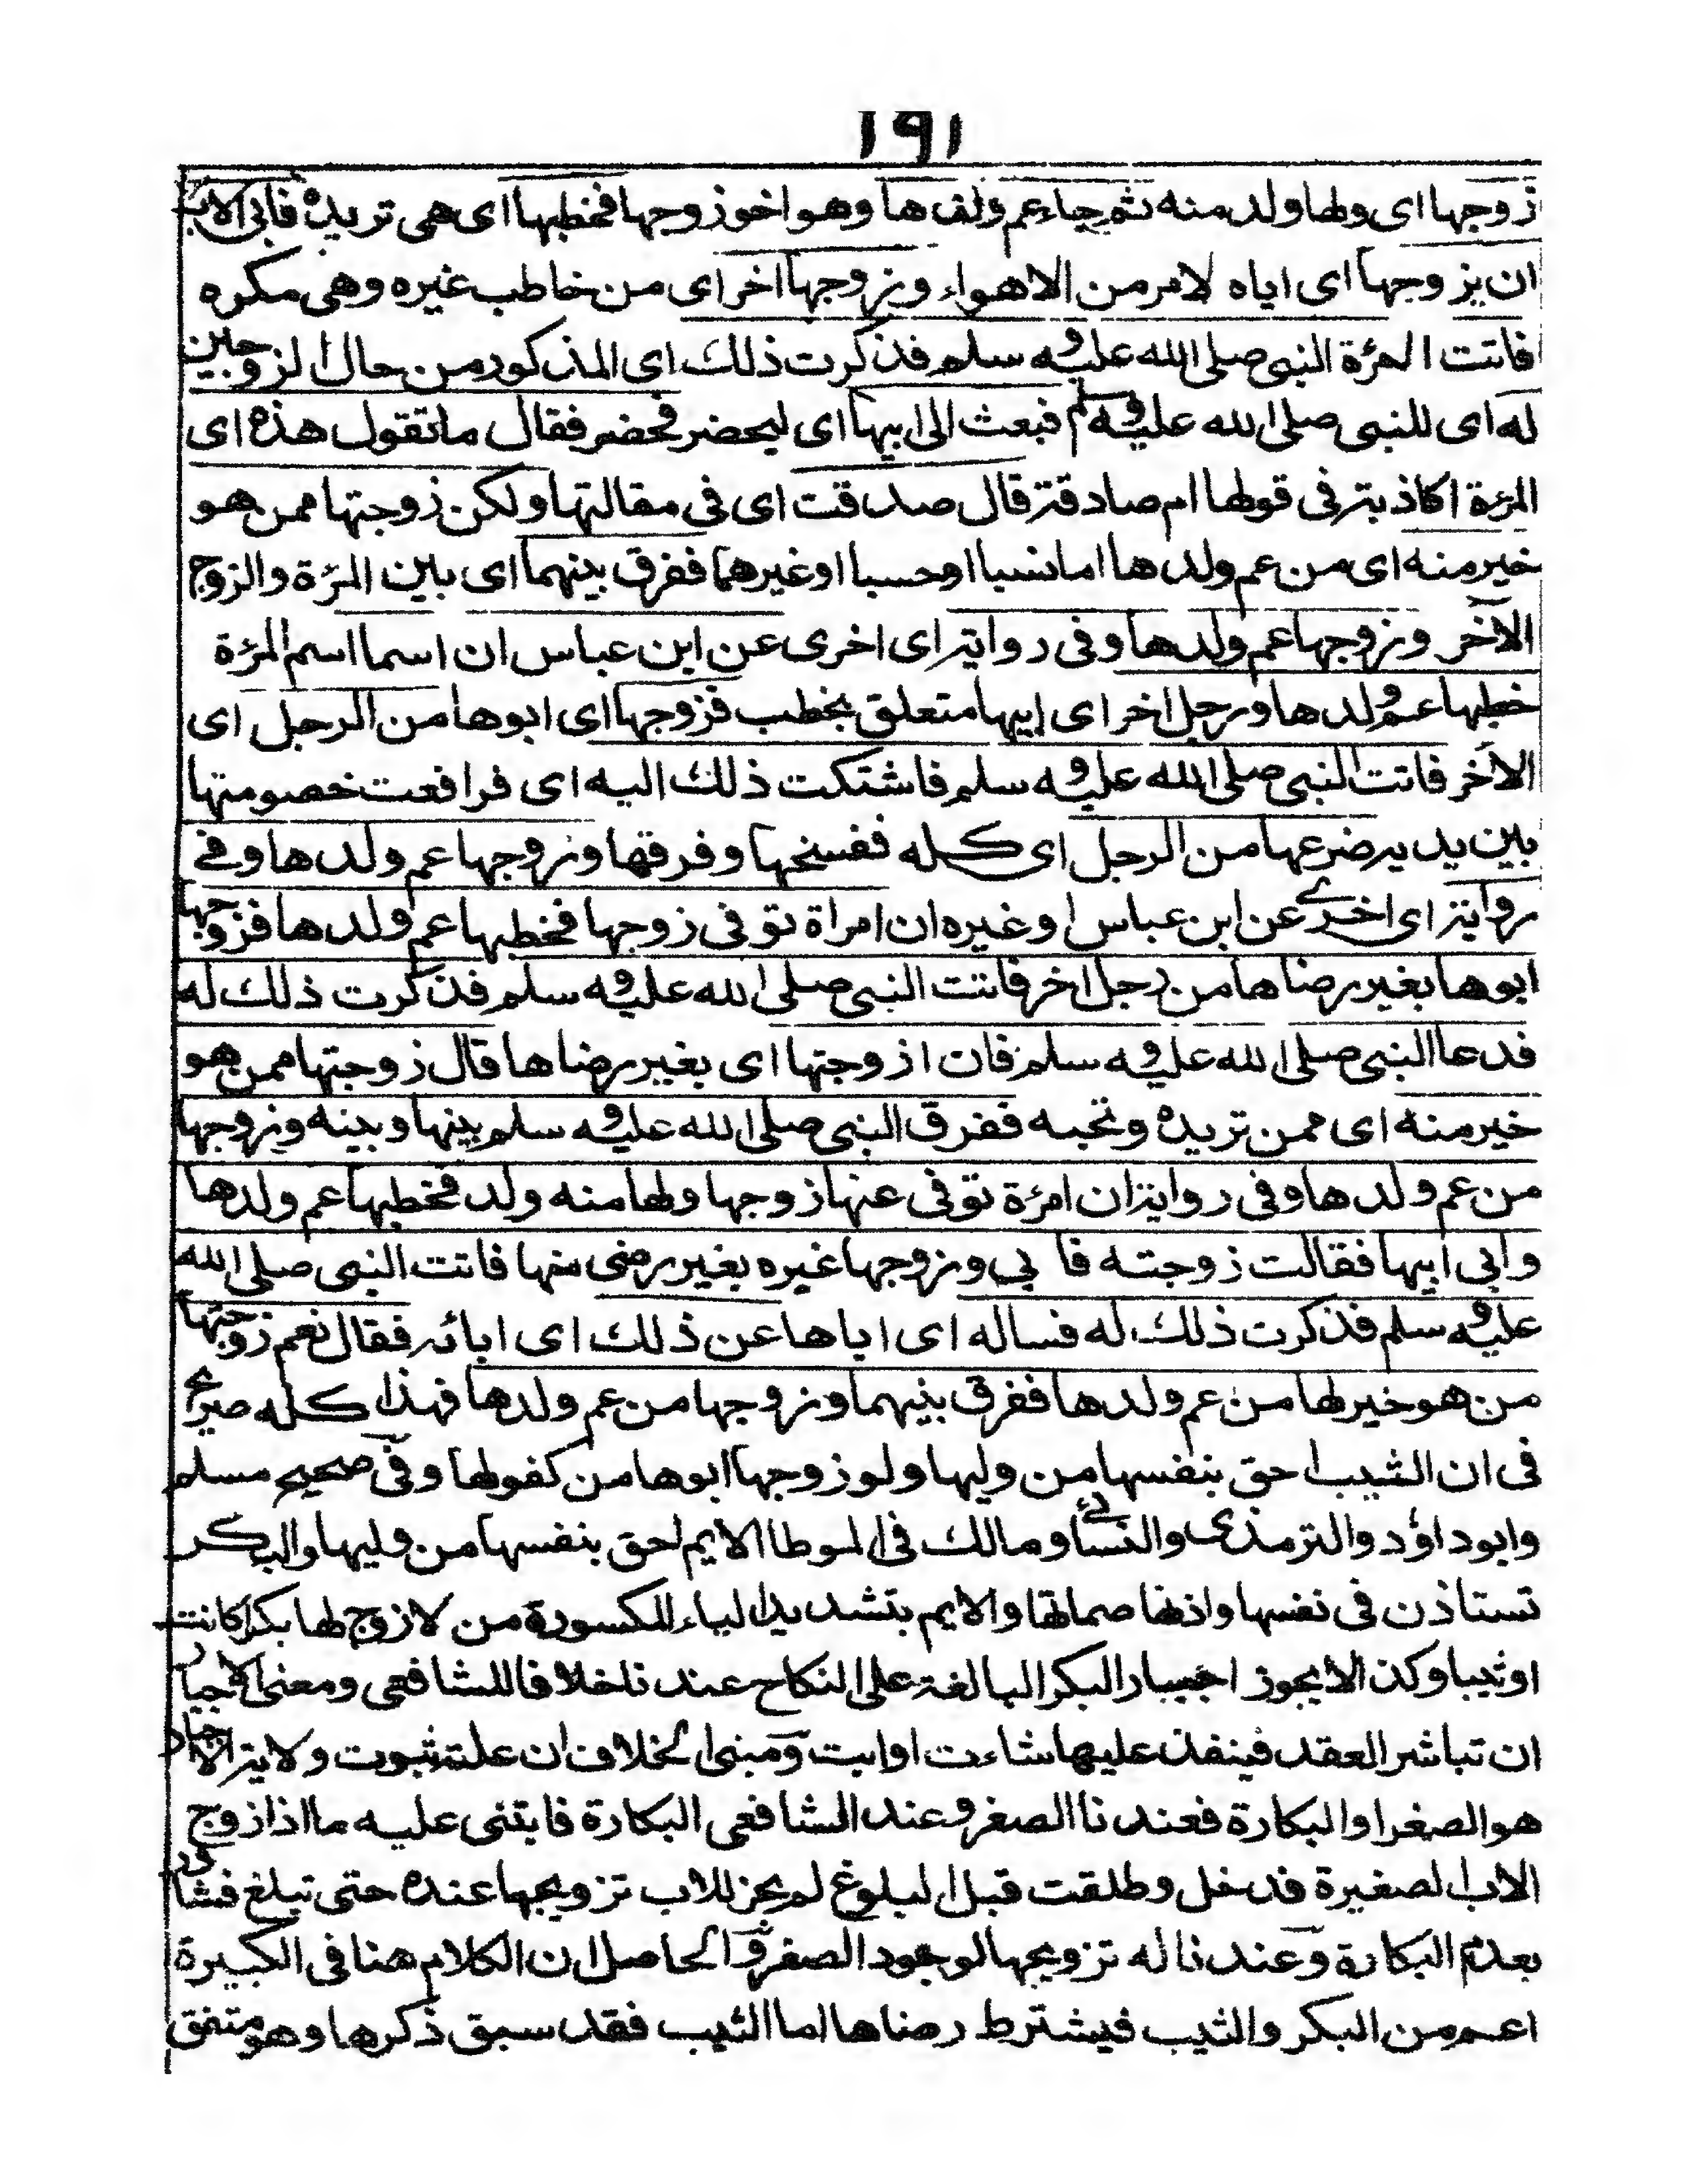 ١٩١
زوجها اى ولها ولد منه ثم جاء عم ولدها وهو اخو زوجها فخطبها اى هى تريده فابى الاب
ان يزوجها اى اياه لامر من الاهواء وزوجها اخر اى من خاطب غيره وهى مكره
فاتت المرءة النبى صلى الله عليه وسلم فذكرت ذلك اى المذكور من حال الزوجين
له اى للنبى صلى الله عليه وسلم فبعث الى ابيها اى ليحضر فحضر فقال ما تقول هذه اى
المرءة اكاذبة فى قولها ام صادقة قال صدقت اى فى مقالتها ولكن زوجتها ممن هو
خير منه اى من عم ولدها اما نسبا اوحسبا اوغيرهما ففرق بينهما اى بين المرءة والزوج
الآخر وزوجها عم ولدها وفى رواية اى اخرى عن ابن عباس ان اسما اسم المرءة
خطبها عم ولدها ورجل اخر اى ابيها متعلق بخطب فزوجها اى ابوها من الرجل اى
الآخر فاتت النبى صلى الله عليه وسلم فاشتكت ذلك اليه اى فرافعت خصومتها
بين يديه ضرعها من الرجل اى كله ففسخها وفرقها وزوجها عم ولدها وفى
رواية اى اخرى عن ابن عباس اوغيره ان امراة توفى زوجها فخطبها عم ولدها فزوجها
ابوها بغير رضاها من رجل اخر فاتت النبى صلى الله عليه وسلم فذكرت ذلك له
فدعا النبى صلى الله عليه وسلم فان ازوجتها اى بغير رضاها قال زوجتها ممن هو
خير منه اى ممن تريده وتحبه ففرق النبى صلى الله عليه وسلم بينها وبينه وزوجها
من عم ولدها وفى رواية ان امرءة توفى عنها زوجها ولها منه ولد فخطبها عم ولدها
وابى ابيها فقالت زوجته فابى وزوجها غيره بغير رضى منها فاتت النبى صلى الله
عليه وسلم فذكرت ذلك له فساله اى اباها عن ذلك اى ابائه فقال نعم زوجتها
من هو خير لها من عم ولدها ففرق بينهما وزوجها من عم ولدها فهذا كله صريح
فى ان الثيب احق بنفسها من وليها ولو زوجها ابوها من كفولها وفى صحيح مسلم
وابو داؤد والترمذى والنسائے ومالك فى الموطا الايم احق بنفسها من وليها والبكر
تستاذن فى نفسها واذنها صماتها والايم بتشديد الياء المكسورة من لا زوج لها بكرا كانت
او ثيبا وكذا لا يجوز اجبار البكر البالغة على النكاح عندنا خلافا للشافعى ومعنى الاجبار
ان تباشر العقد فينفذ عليها شاءت او ابت ومبنى الخلاف ان علة ثبوت ولاية الاجبار
هو الصغر او البكارة فعندنا الصغر وعند الشافعى البكارة فابتنى عليه ما اذا زوج
الاب الصغيرة فدخل وطلقت قبل البلوغ لم يجز للاب تزويجها عنده حتى تبلغ فتشاور
بعدم البكارة وعندنا له تزويجها لوجود الصغر والحاصل ان الكلام هنا فى الكبيرة
اعم من البكر والثيب فيشترط رضاها اما الثيب فقد سبق ذكرها وهو متفق